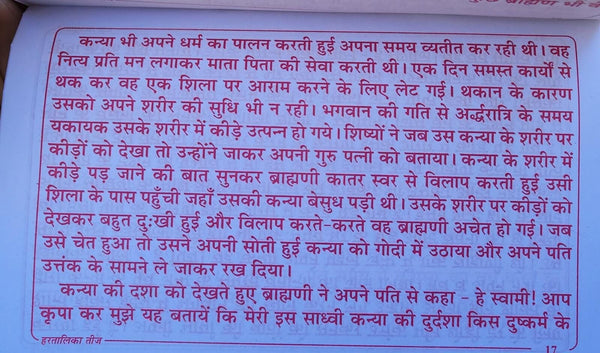 कन्या भी अपने धर्म का पालन करती हुई अपना समय व्यतीत कर रही थी। वह
नित्य प्रति मन लगाकर माता पिता की सेवा करती थी। एक दिन समस्त कार्यों से
थक कर वह एक शिला पर आराम करने के लिए लेट गई। थकान के कारण
उसको अपने शरीर की सुधि भी न रही। भगवान की गति से अर्द्धरात्रि के समय
यकायक उसके शरीर में कीड़े उत्पन्न हो गये। शिष्यों ने जब उस कन्या के शरीर पर
कीड़ों को देखा तो उन्होंने जाकर अपनी गुरु पत्नी को बताया। कन्या के शरीर में
कीड़े पड़ जाने की बात सुनकर ब्राह्मणी कातर स्वर से विलाप करती हुई उसी
शिला के पास पहुँची जहाँ उसकी कन्या बेसुध पड़ी थी। उसके शरीर पर कीड़ों को
देखकर बहुत दुःखी हुई और विलाप करते-करते वह ब्राह्मणी अचेत हो गई। जब
उसे चेत हुआ तो उसने अपनी सोती हुई कन्या को गोदी में उठाया और अपने पति
उत्तंक के सामने ले जाकर रख दिया।
कन्या की दशा को देखते हुए ब्राह्मणी ने अपने पति से कहा - हे स्वामी! आप
कृपा कर मुझे यह बतायें कि मेरी इस साध्वी कन्या की दुर्दशा किस दुष्कर्म के
हरतालिका तीज
17